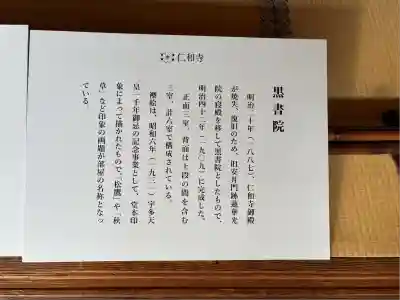 仁和寺
黒書院
明治二十年(一八八七)、仁和寺御殿
が焼失、復旧のため、旧安井門跡蓮華光
院の寝殿を移して黒書院としたもので、
明治四十二年(一九〇九)に完成した。
正面三室、背面は上段の間を含む
三室、計六室で構成されている。
襖絵は、昭和六年(一九三一)宇多天
皇一千年御忌の記念事業として、堂本印
象によって描かれたもので、「松鷹」や「秋
草」など印象の画題が部屋の名称となっ
ている。